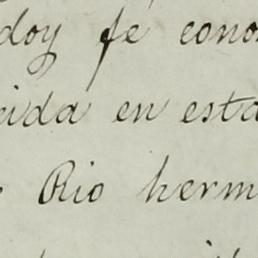 doy fe cono
cida en esta
Rio herm